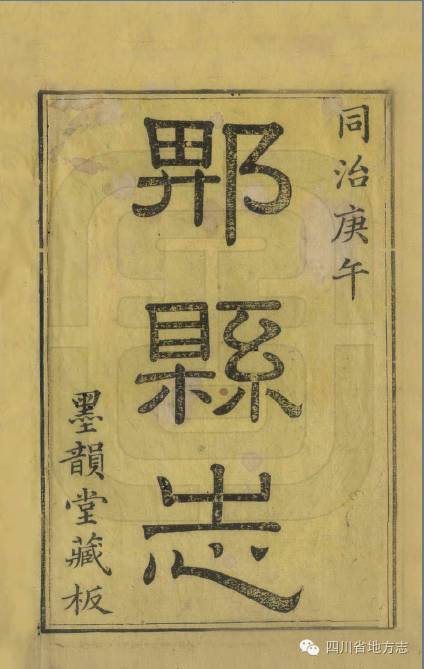 同治庚午
郫縣志
墨韻堂藏板
四川省地方志